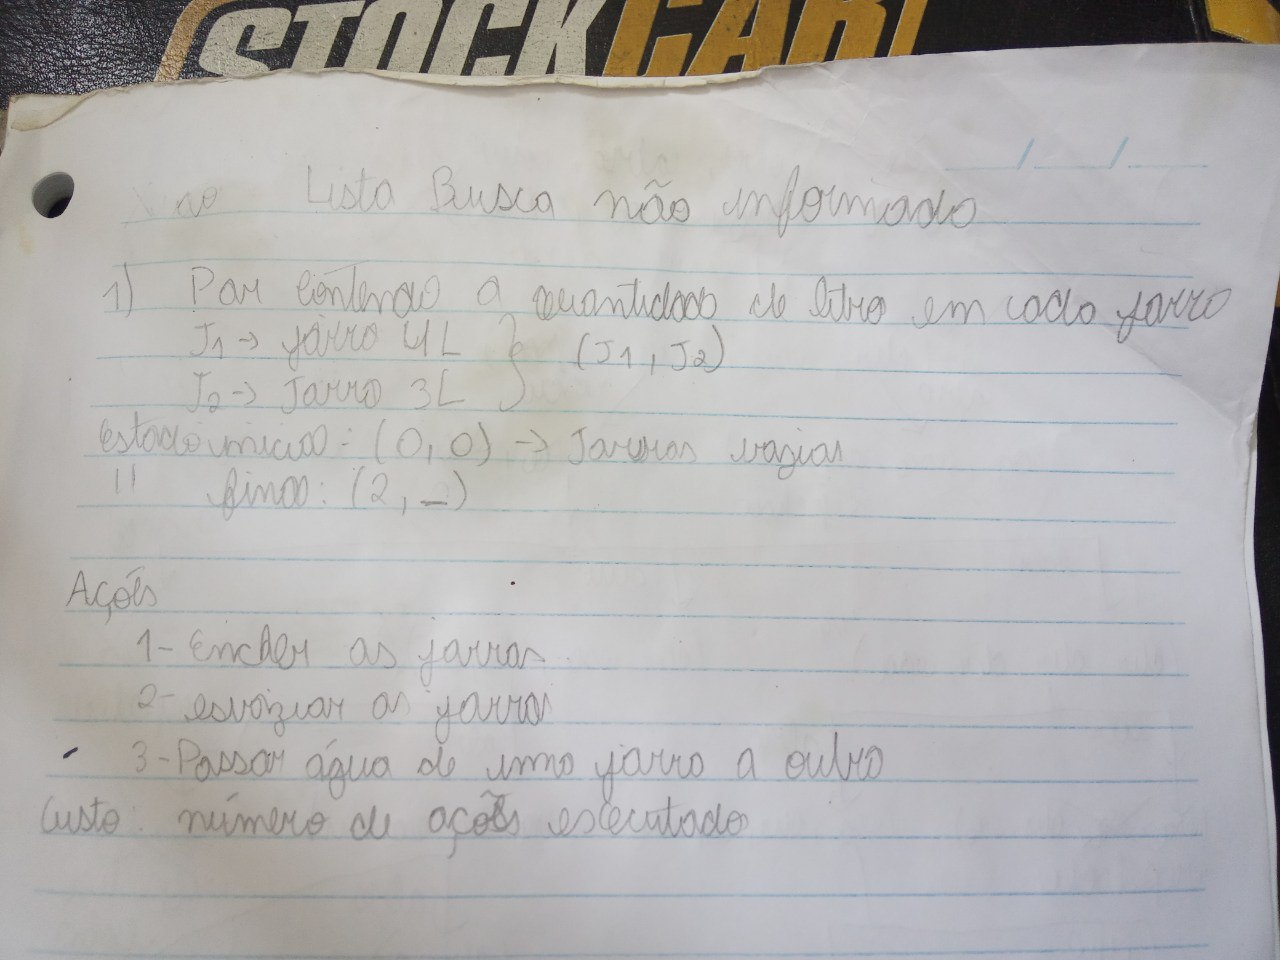 STOCKCAR
/ /
Lista Busca não informada
1) Par contendo a quantidade de litro em cada jarra
J1 -> jarra 4L } (J1, J2)
J2 -> Jarra 3L
Estado inicial: (0, 0) -> Jarras vazias
11 final: (2, _)
Ações
1- Encher as jarras
2- esvaziar as jarras
3- Passar água de uma jarra a outra
Custo: número de ações executado